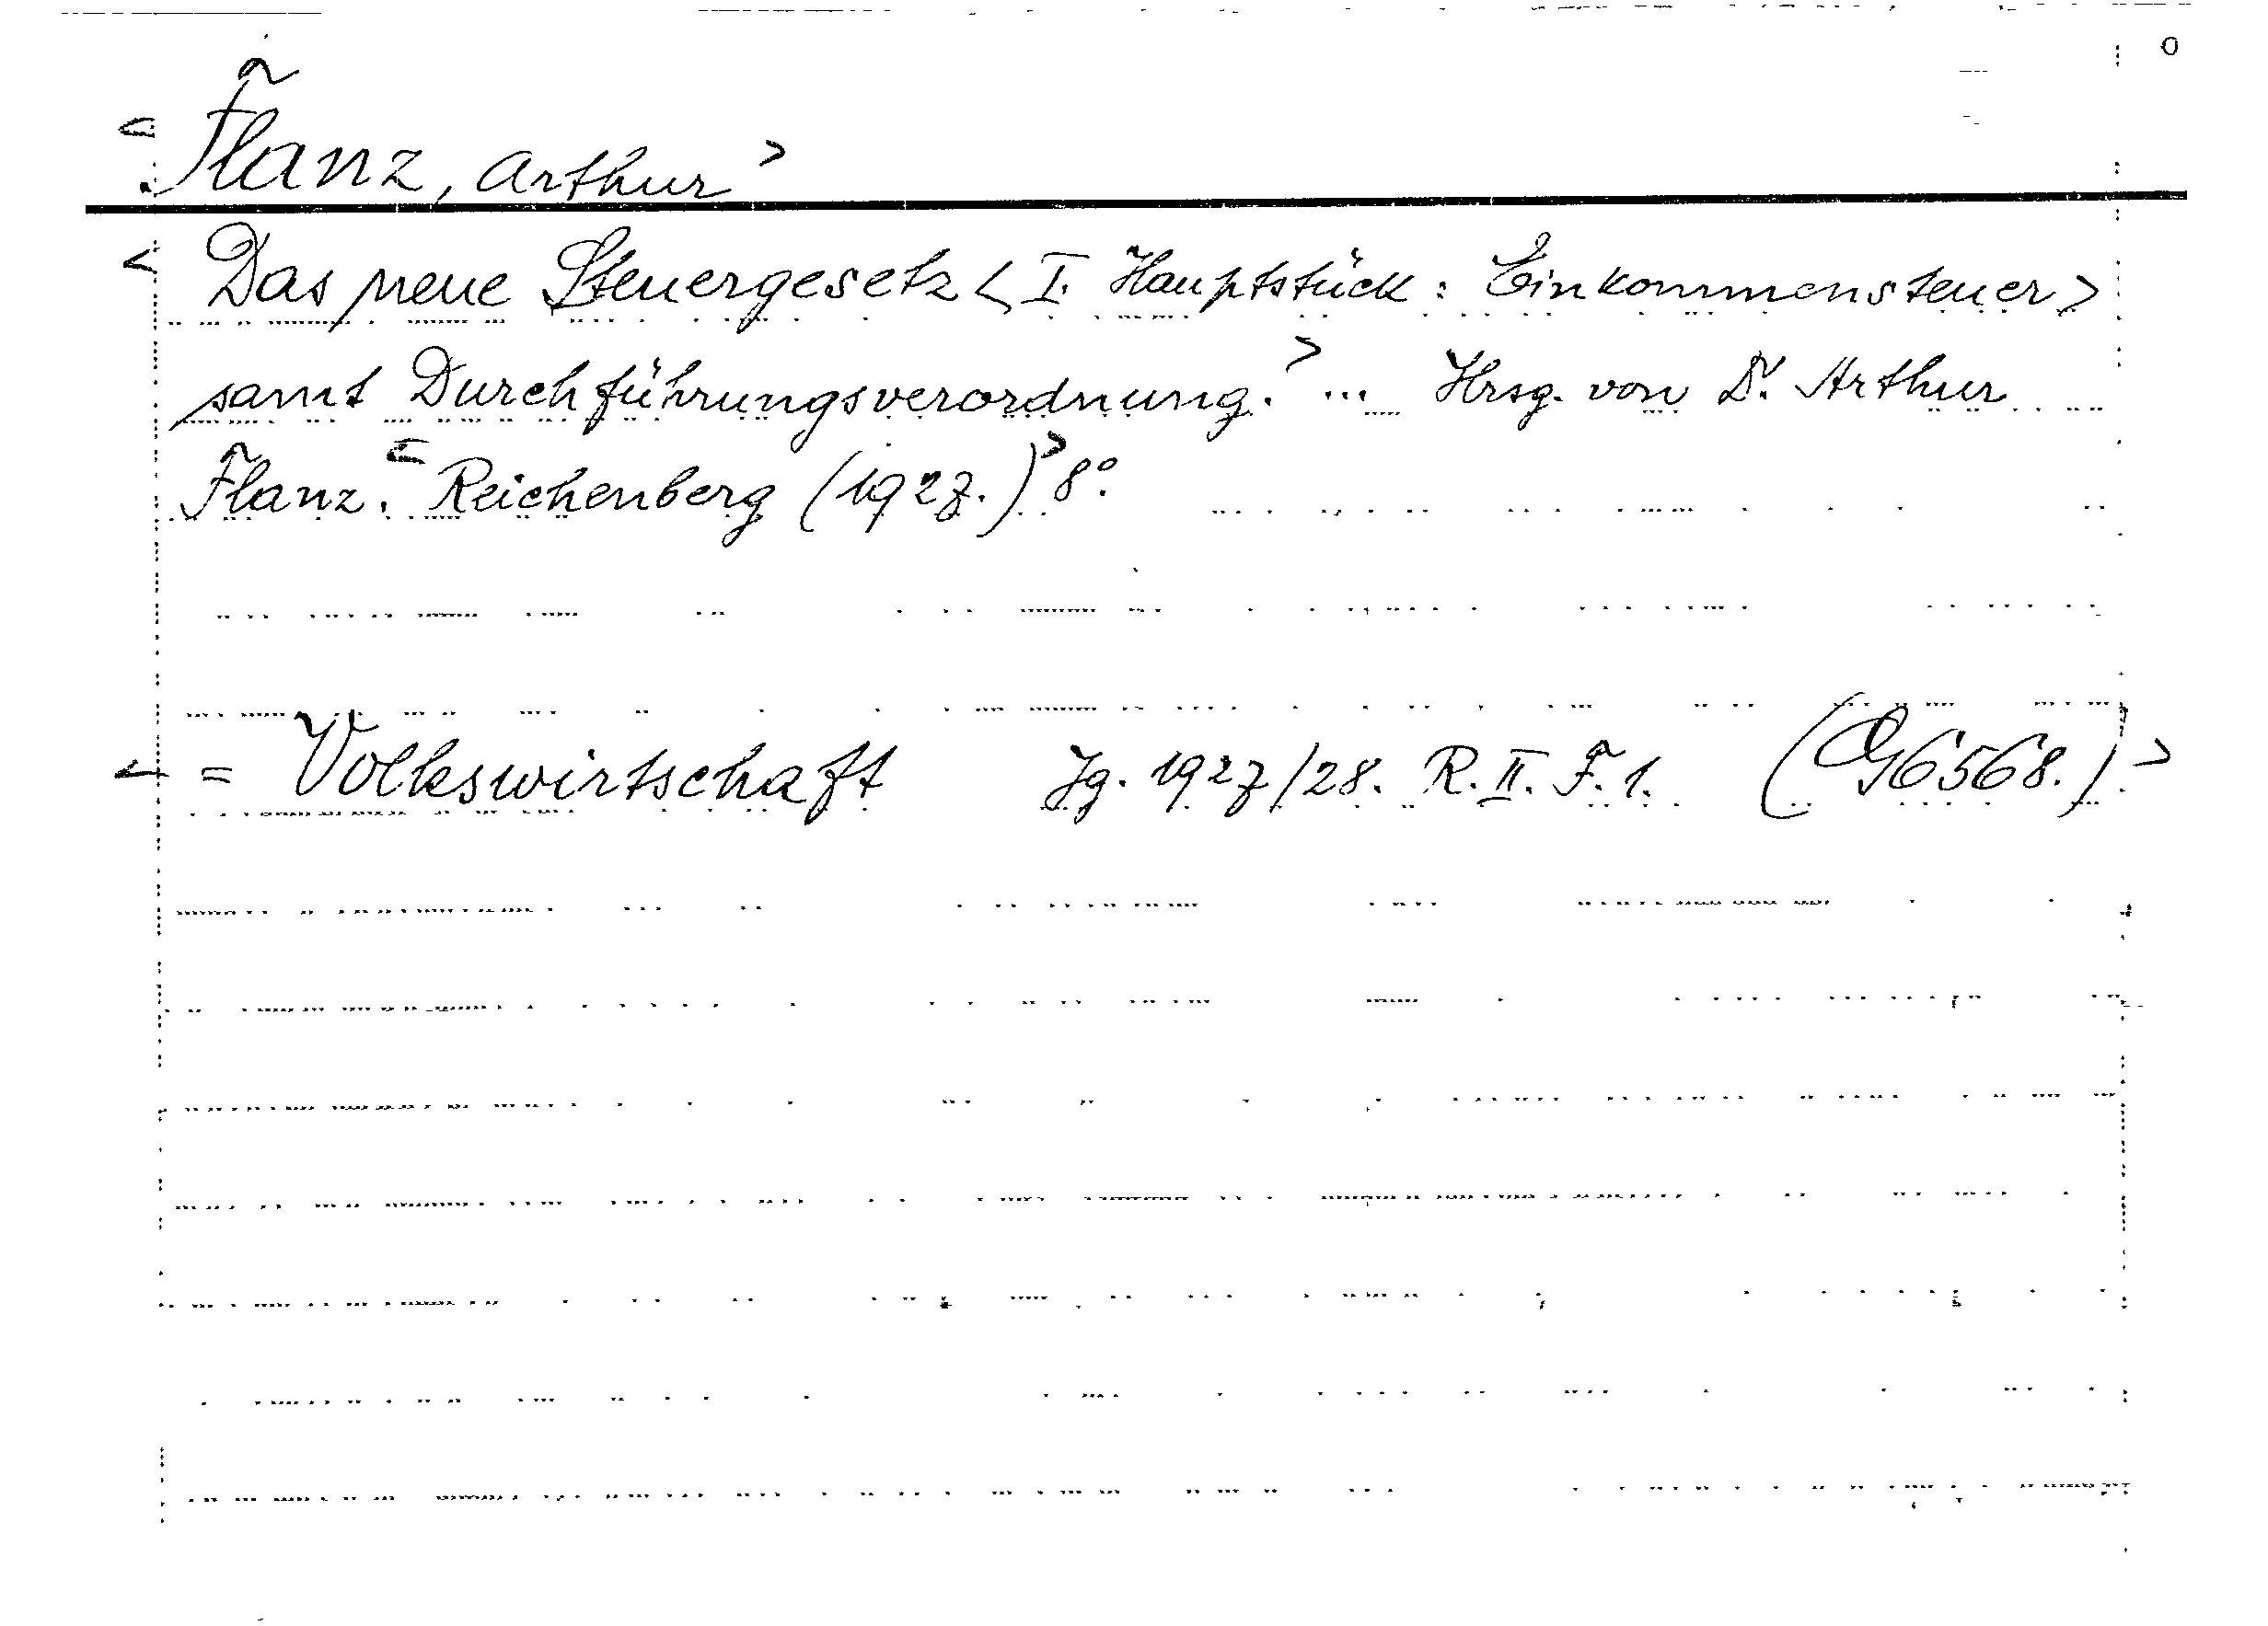 <Flanz, Arthur>
<Das neue Steuergesetz <I. Hauptstück: Einkommensteuer>
samt Durchführungsverordnung.> ... Hrsg. von Dr. Arthur
Flanz. <Reichenberg (1927.)> 8°.
<= Volkswirtschaft Jg. 1927/28. R. II. F. 1. (G6568.)>